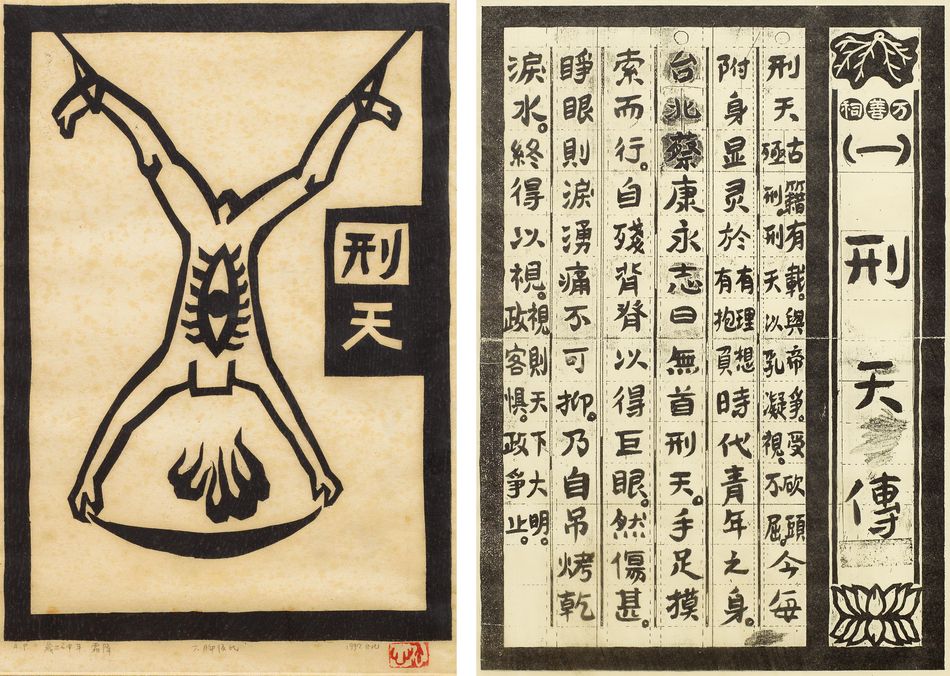 刑天
A.P 霜降 1997
万善祠
(一)
刑天傳
刑天古籍有載。與帝爭。受砍頭殛刑。刑天以乳凝視。不屈。今每
附身显灵於有理想有抱負時代青年之身。
台北蔡康永志曰無首刑天。手足摸
索而行。自殘背脊以得巨眼。然傷甚。
睜眼則淚湧痛不可抑。乃自吊烤乾
淚水。終得以視。視則天下大明。政客惧。政爭止。